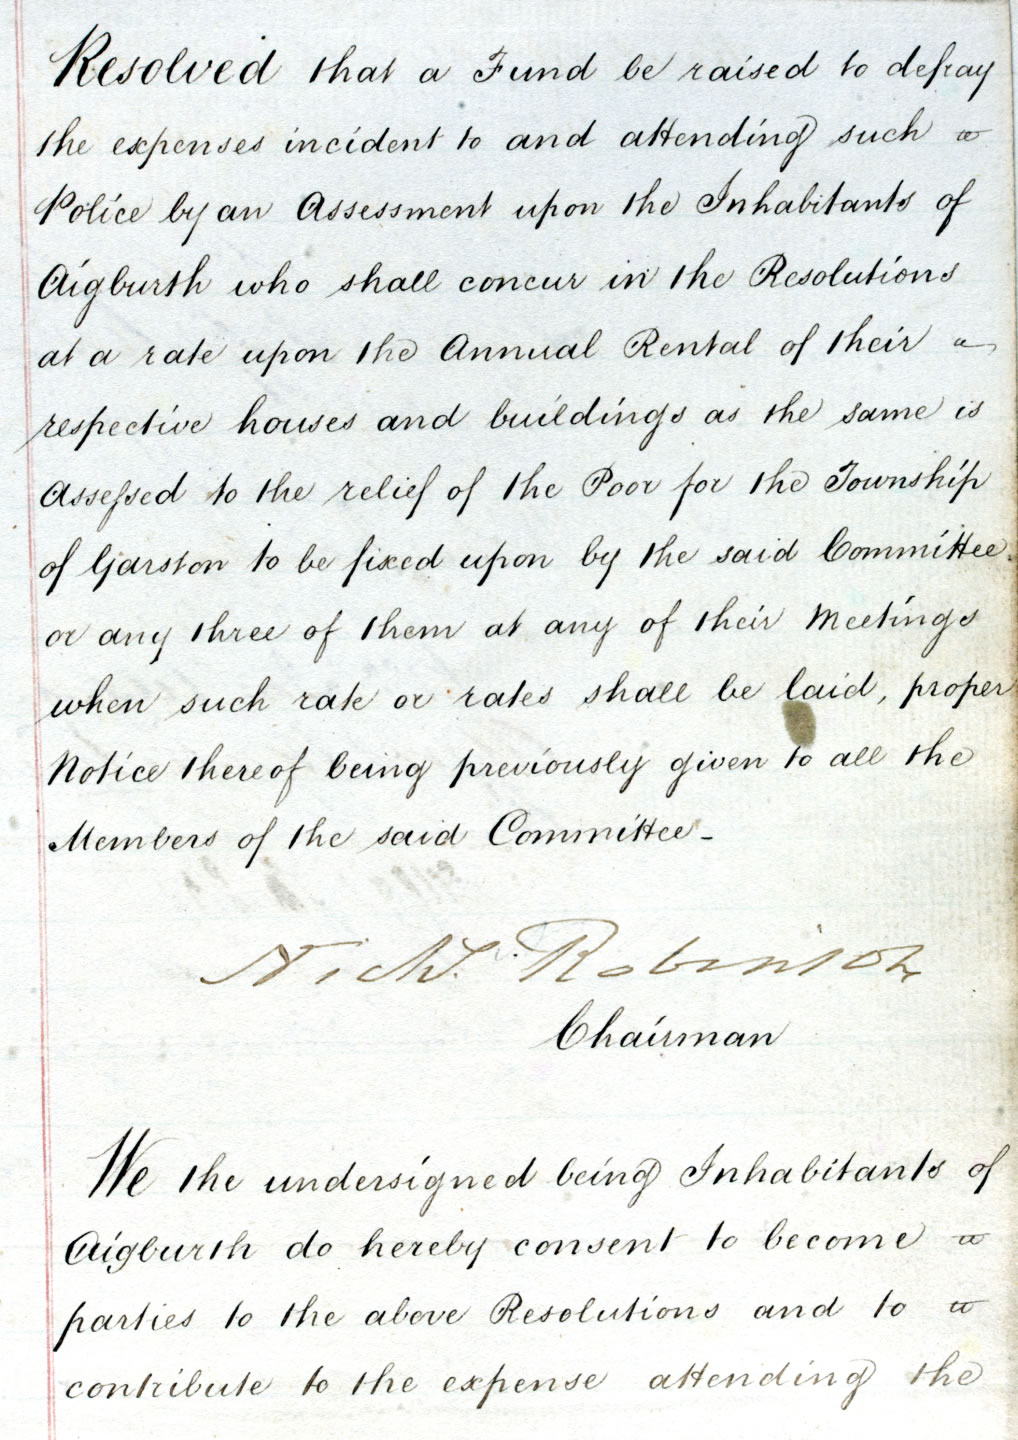 Resolved that a Fund be raised to defray
the expenses incident to and attending such
Police by an Assessment upon the Inhabitants of
Aigburth who shall concur in the Resolutions
at a rate upon the Annual Rental of their
respective houses and buildings as the same is
Assessed to the relief of the Poor for the Township
of Garston to be fixed upon by the said Committee
or any three of them at any of their Meetings
when such rate or rates shall be laid, proper
Notice thereof being previously given to all the
Members of the said Committee -
Nichs. Robinson
Chairman
We the undersigned being Inhabitants of
Aigburth do hereby consent to become
parties to the above Resolutions and to
contribute to the expense attending the